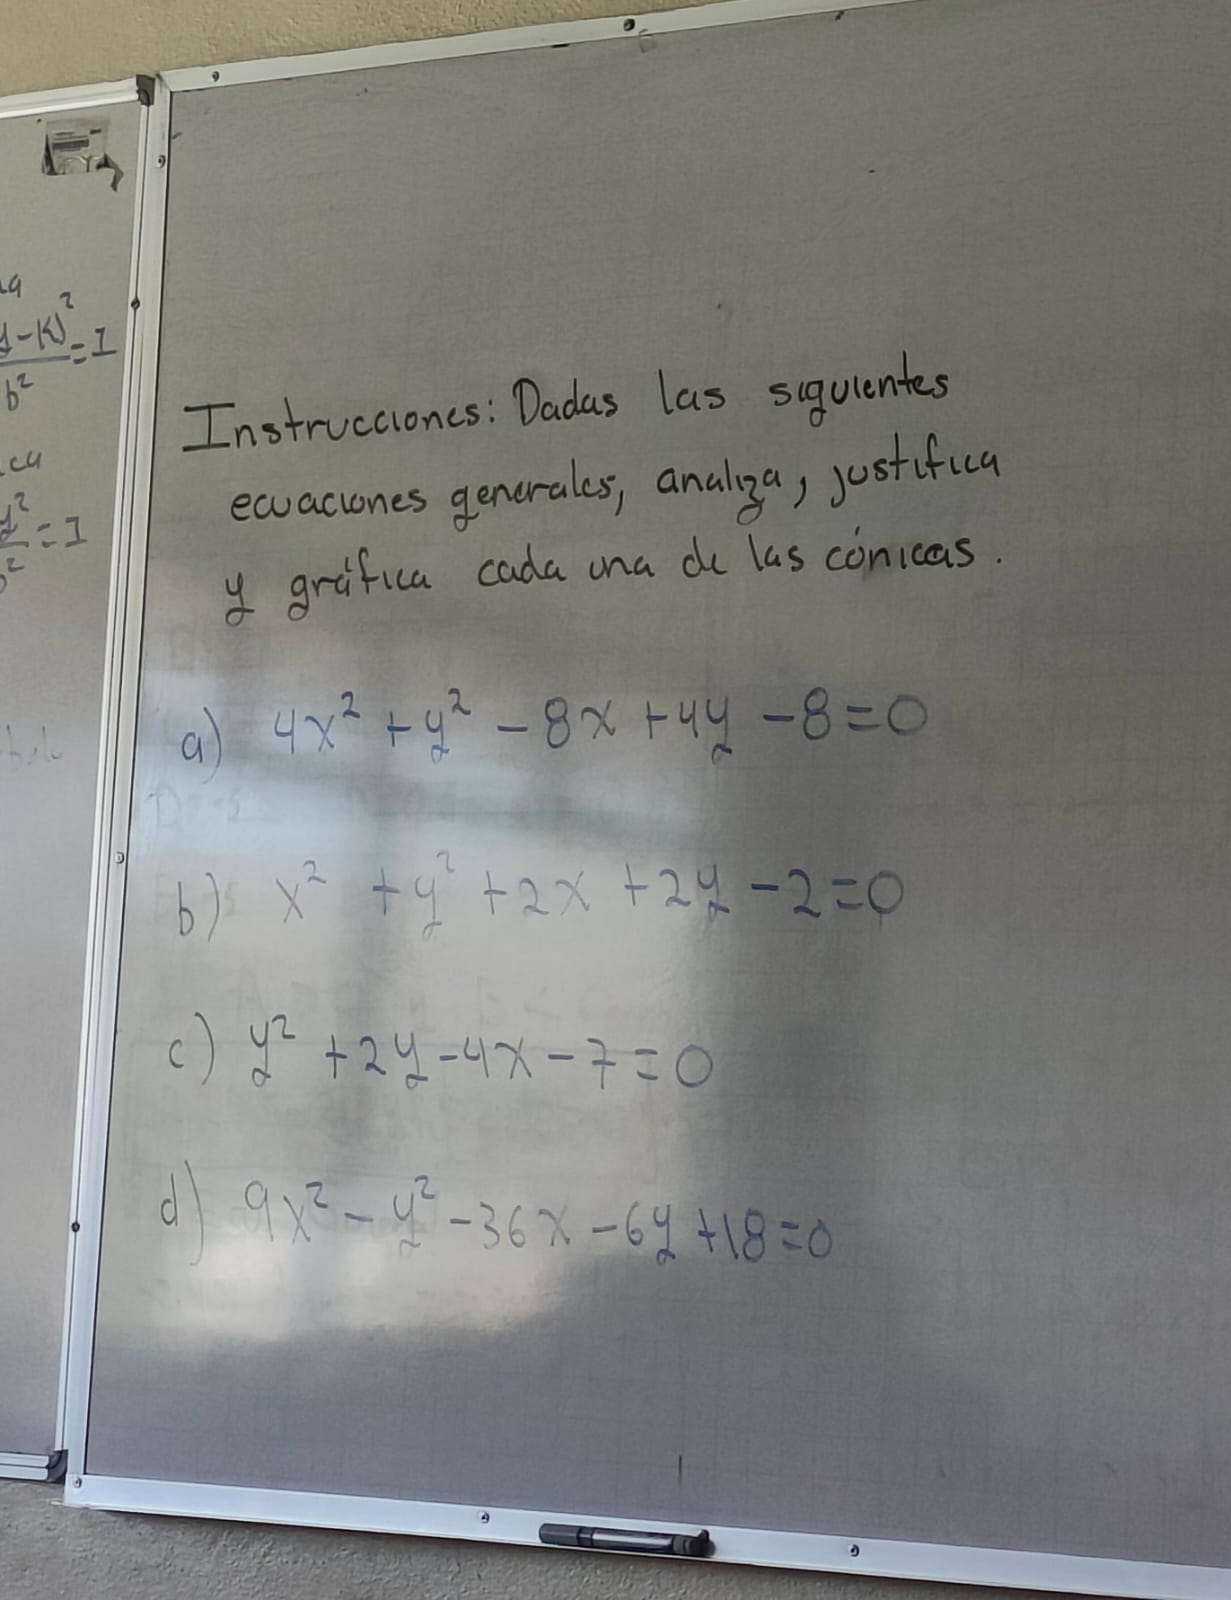 y-K)²
=1
b²
ca
y²
=1
Instrucciones: Dadas las siguientes
ecuaciones generales, analiza, justifica
y gráfica cada una de las cónicas.
a) 4x² + y² - 8x + 4y - 8 = 0
b) x² + y² + 2x + 2y - 2 = 0
c) y² + 2y - 4x - 7 = 0
d) 9x² - y² - 36x - 6y + 18 = 0